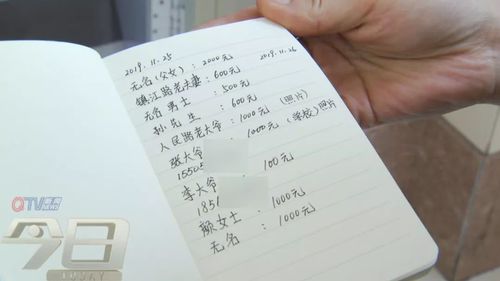 2019.11.25 2019.11.26
无名(父女)：2000元
镇江路老夫妻：600元
无名男士：500元
孙先生：600元
人民路老大爷：1000元 (照片)
张大爷：1000元 (学校)照片
15505
李大爷：100元
1851
颜女士：1000元
无名：1000元
QTV
今日